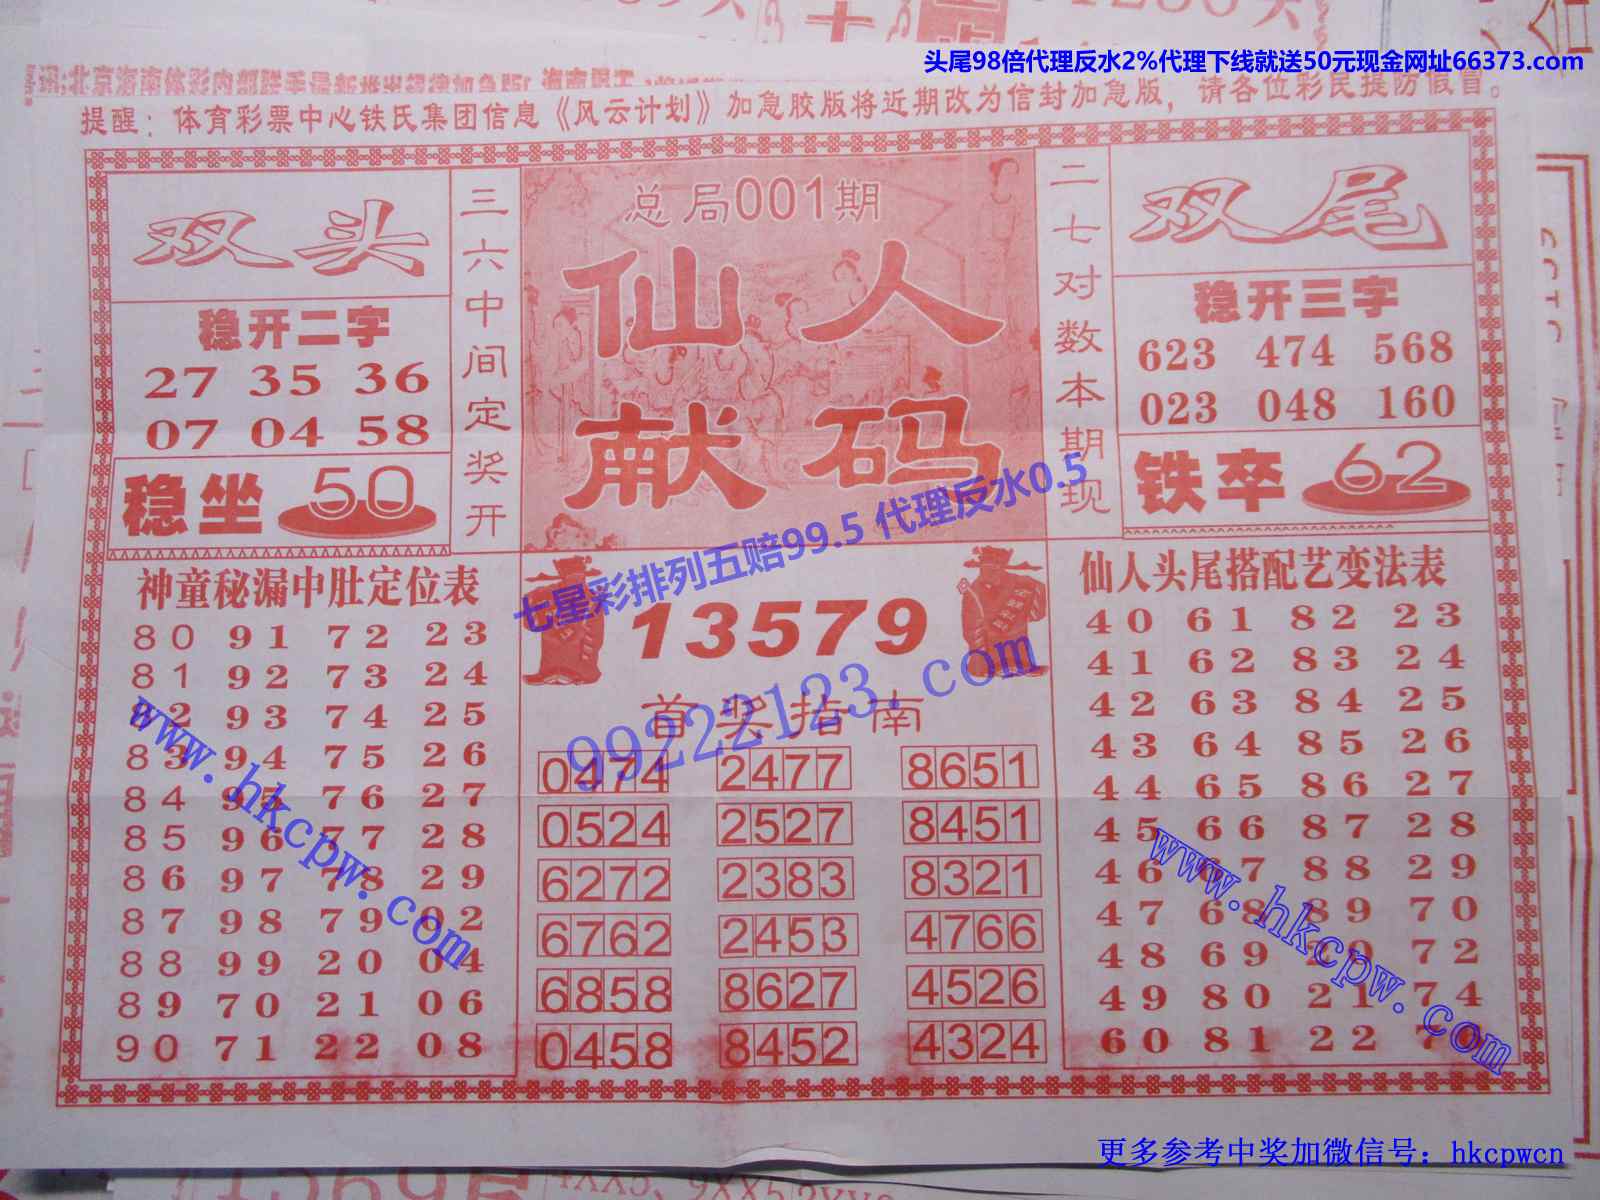 头尾98倍代理反水2%代理下线就送50元现金网址66373.com
提醒：体育彩票中心铁氏集团信息《风云计划》加急胶版将近期改为信封加急版，请各位彩民提防假冒。
双头
稳开二字
27 35 36
07 04 58
稳坐 50
三六中间定奖开
总局001期
仙人
献码
二七对数本期现
双尾
稳开三字
623 474 568
023 048 160
铁卒 62
七星彩排列五赔99.5 代理反水0.5
99222123.com
神童秘漏中肚定位表
80 91 72 23
81 92 73 24
82 93 74 25
83 94 75 26
84 95 76 27
85 96 77 28
86 97 78 29
87 98 79 02
88 99 20 04
89 70 21 06
90 71 22 08
www.hkcpw.com
13579
首奖指南
0474 2477 8651
0524 2527 8451
6272 2383 8321
6762 2453 4766
6858 8627 4526
0458 8452 4324
仙人头尾搭配艺变法表
40 61 82 23
41 62 83 24
42 63 84 25
43 64 85 26
44 65 86 27
45 66 87 28
46 67 88 29
47 68 89 70
48 69 20 72
49 80 21 74
60 81 22 76
www.hkcpw.com
更多参考中奖加微信号：hkcpwcn